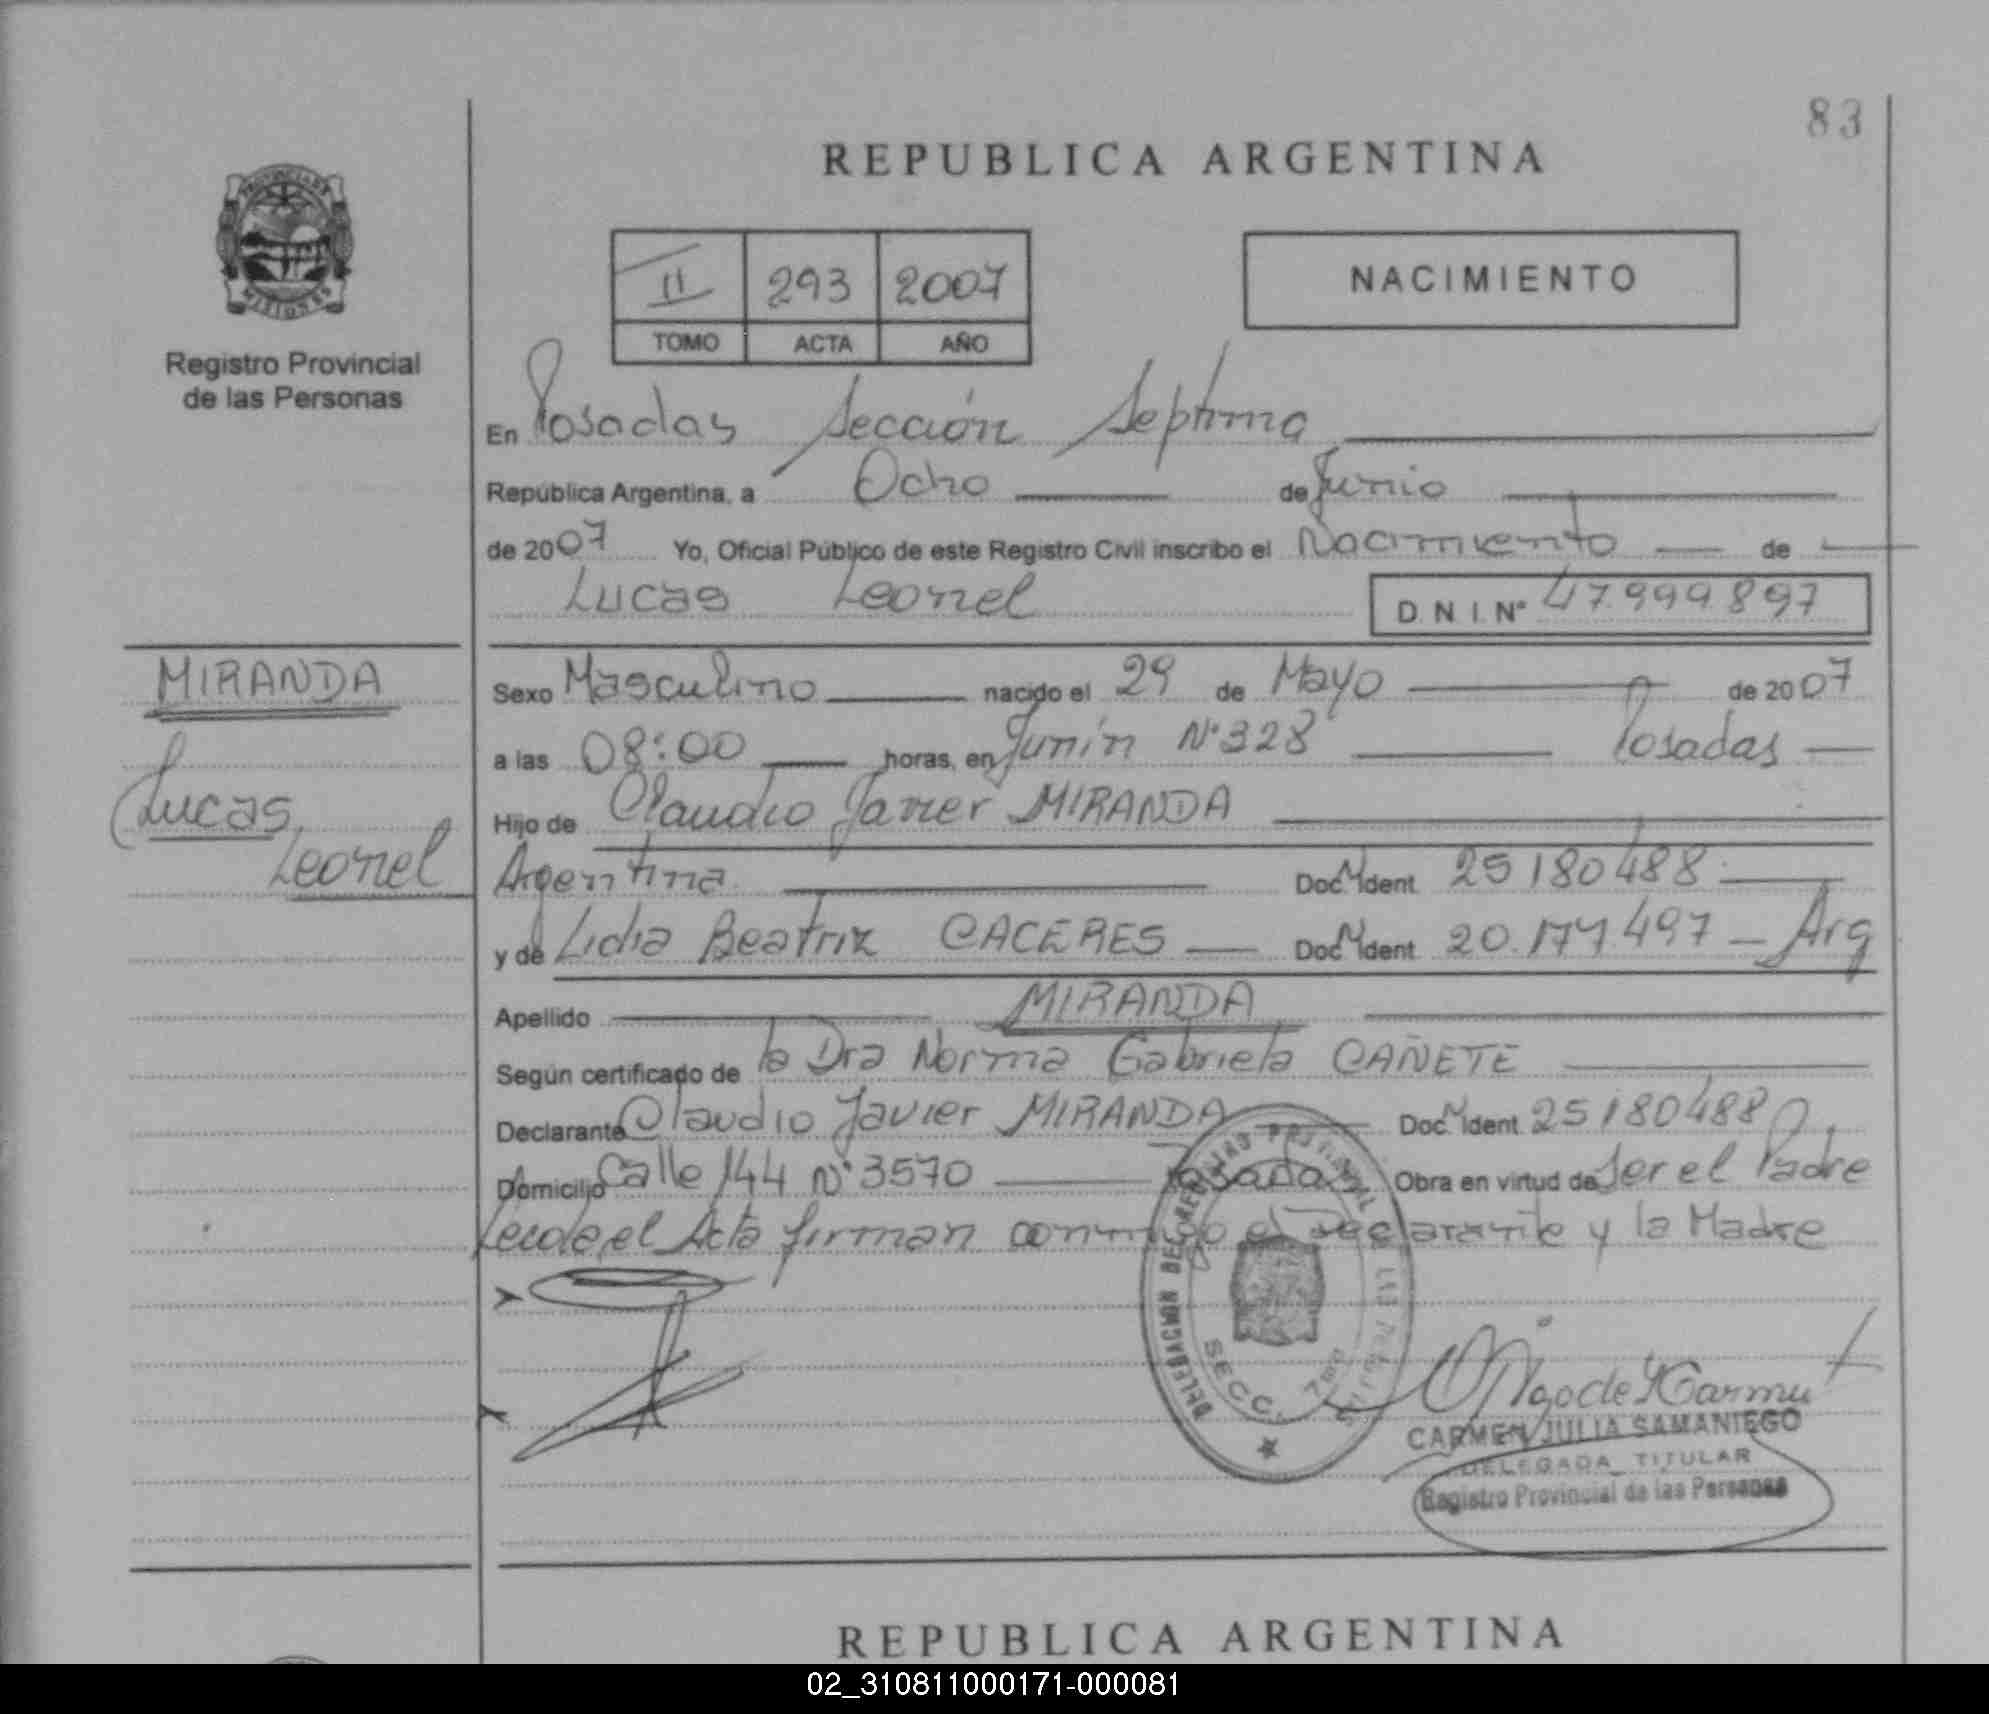 83
REPUBLICA ARGENTINA
PROVINCIA DE
MISIONES
Registro Provincial
de las Personas
II 293 2007
TOMO ACTA AÑO
NACIMIENTO
En Posadas Sección Septima
República Argentina, a Ocho de Junio
de 2007 Yo, Oficial Público de este Registro Civil inscribo el Nacimiento de
Lucas Leonel D. N. I. N° 47.999.897
MIRANDA
Lucas
Leonel
Sexo Masculino nacido el 29 de Mayo de 2007
a las 08:00 horas, en Junín N° 328 Posadas
Hijo de Claudio Javier MIRANDA
Argentina Doc. Ident 25180488
y de Lidia Beatriz CACERES Doc. Ident 20.177.497 Arg
Apellido MIRANDA
Según certificado de la Dra Norma Gabriela CAÑETE
Declarante Claudio Javier MIRANDA Doc. Ident 25180488
Domicilio Calle 144 N° 3570 Posadas Obra en virtud de Ser el Padre
Leida el Acta firman conmigo el Declarante y la Madre
DELEGACION DE
SECC. 7ma
CARMEN JULIA SAMANIEGO
DELEGADA TITULAR
Registro Provincial de las Personas
REPUBLICA ARGENTINA
02_310811000171-000081